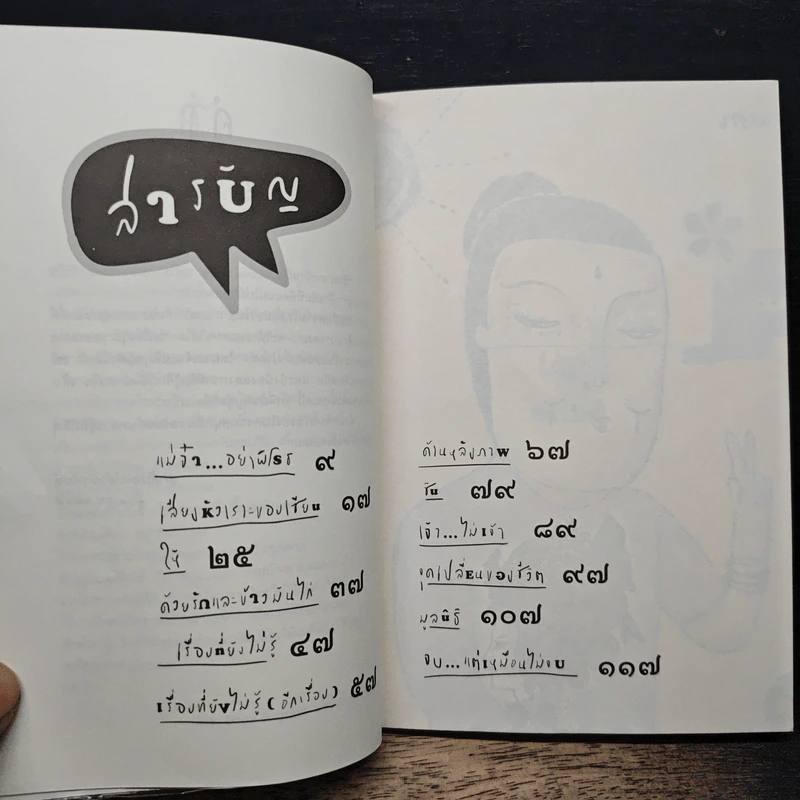 สารบัญ
แม่จ๋า...อย่าพิโรธ ๙
เสียงหัวเราะของเซียน ๑๗
ให้ ๒๕
ด้วยรักและข้าวมันไก่ ๓๗
เรื่องที่ยังไม่รู้ ๔๗
เรื่องที่ยังไม่รู้ (อีกเรื่อง) ๕๗
ด้านหลังภาพ ๖๗
ชั้น ๗๙
เจ้า...ไม่เจ้า ๘๙
จุดเปลี่ยนของชีวิต ๙๗
มูลนิธิ ๑๐๗
จบ...แต่เหมือนไม่จบ ๑๑๗